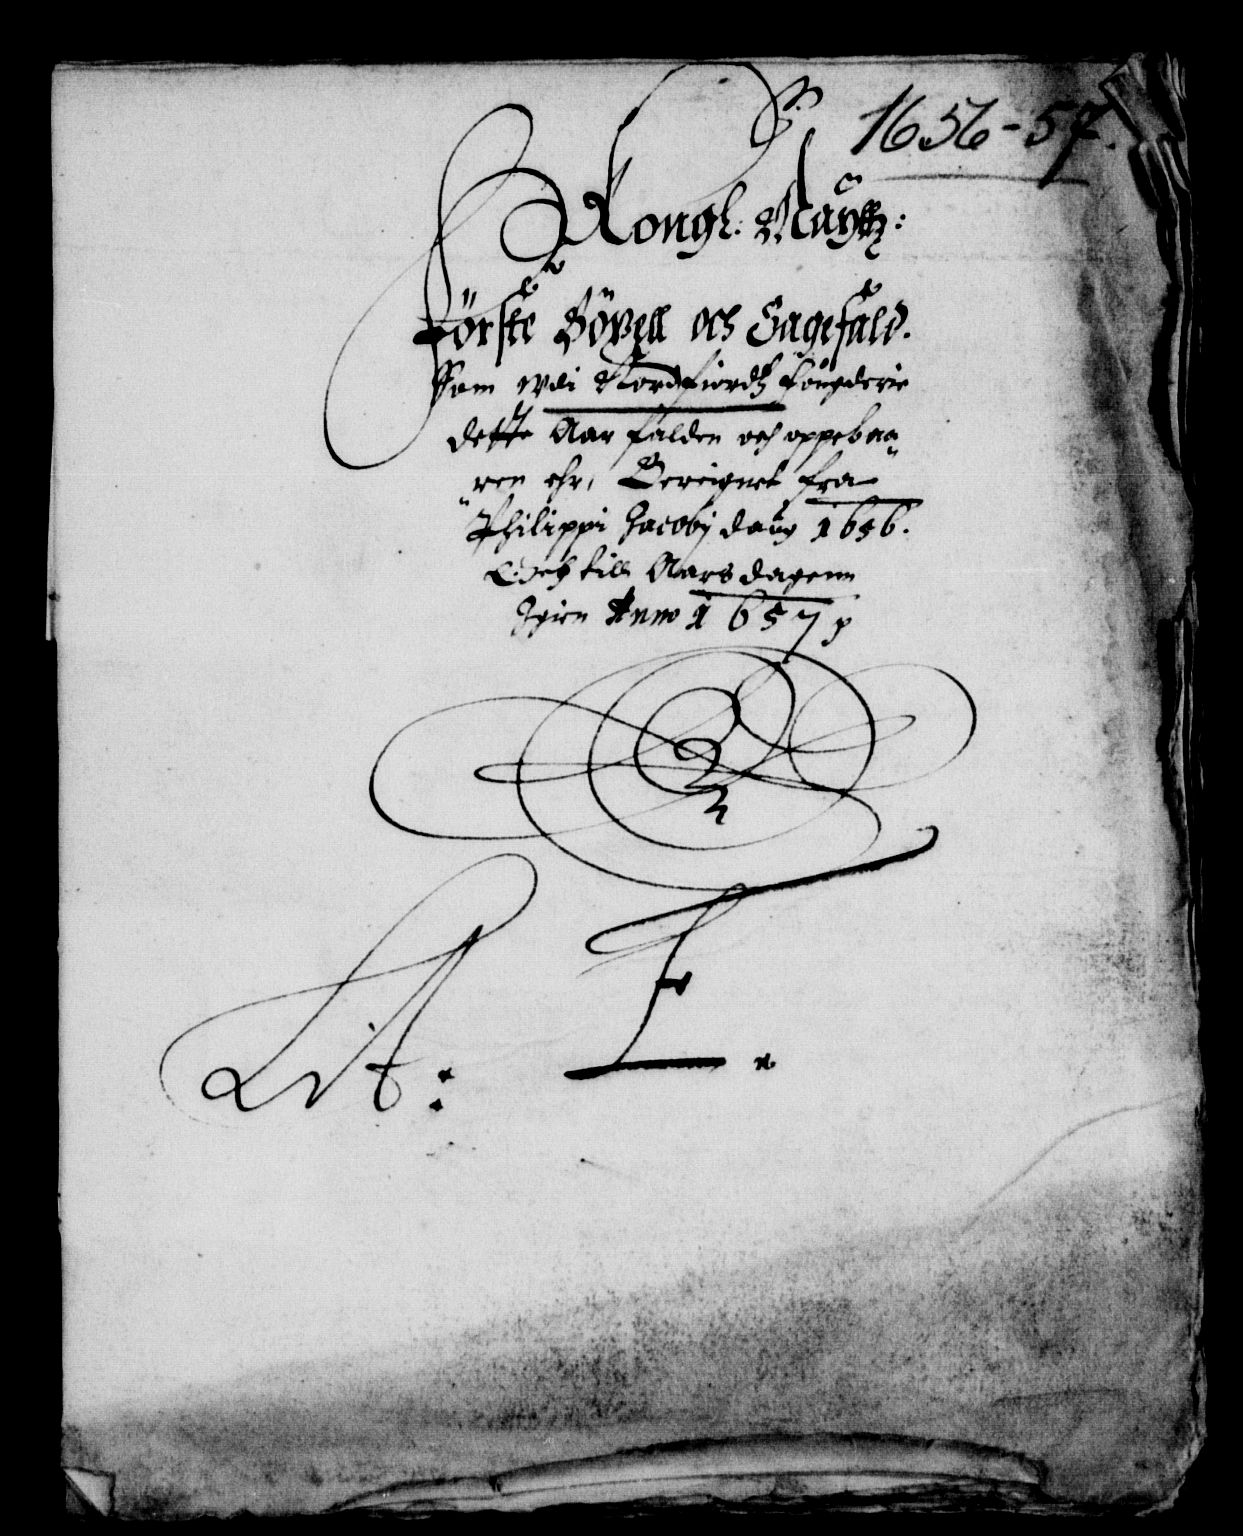 1656-57.
Kongl: Maÿttz:
Förste Böxell och Sagefald.
Som wdi Nordfiordz fougderie
dette Aar falden och oppebaa
ren ehr, Bereignet fra
Philippi Jacobj daug 1656.
Och till Aarsdagenn
Igien Anno 1657 p
Lit: E.